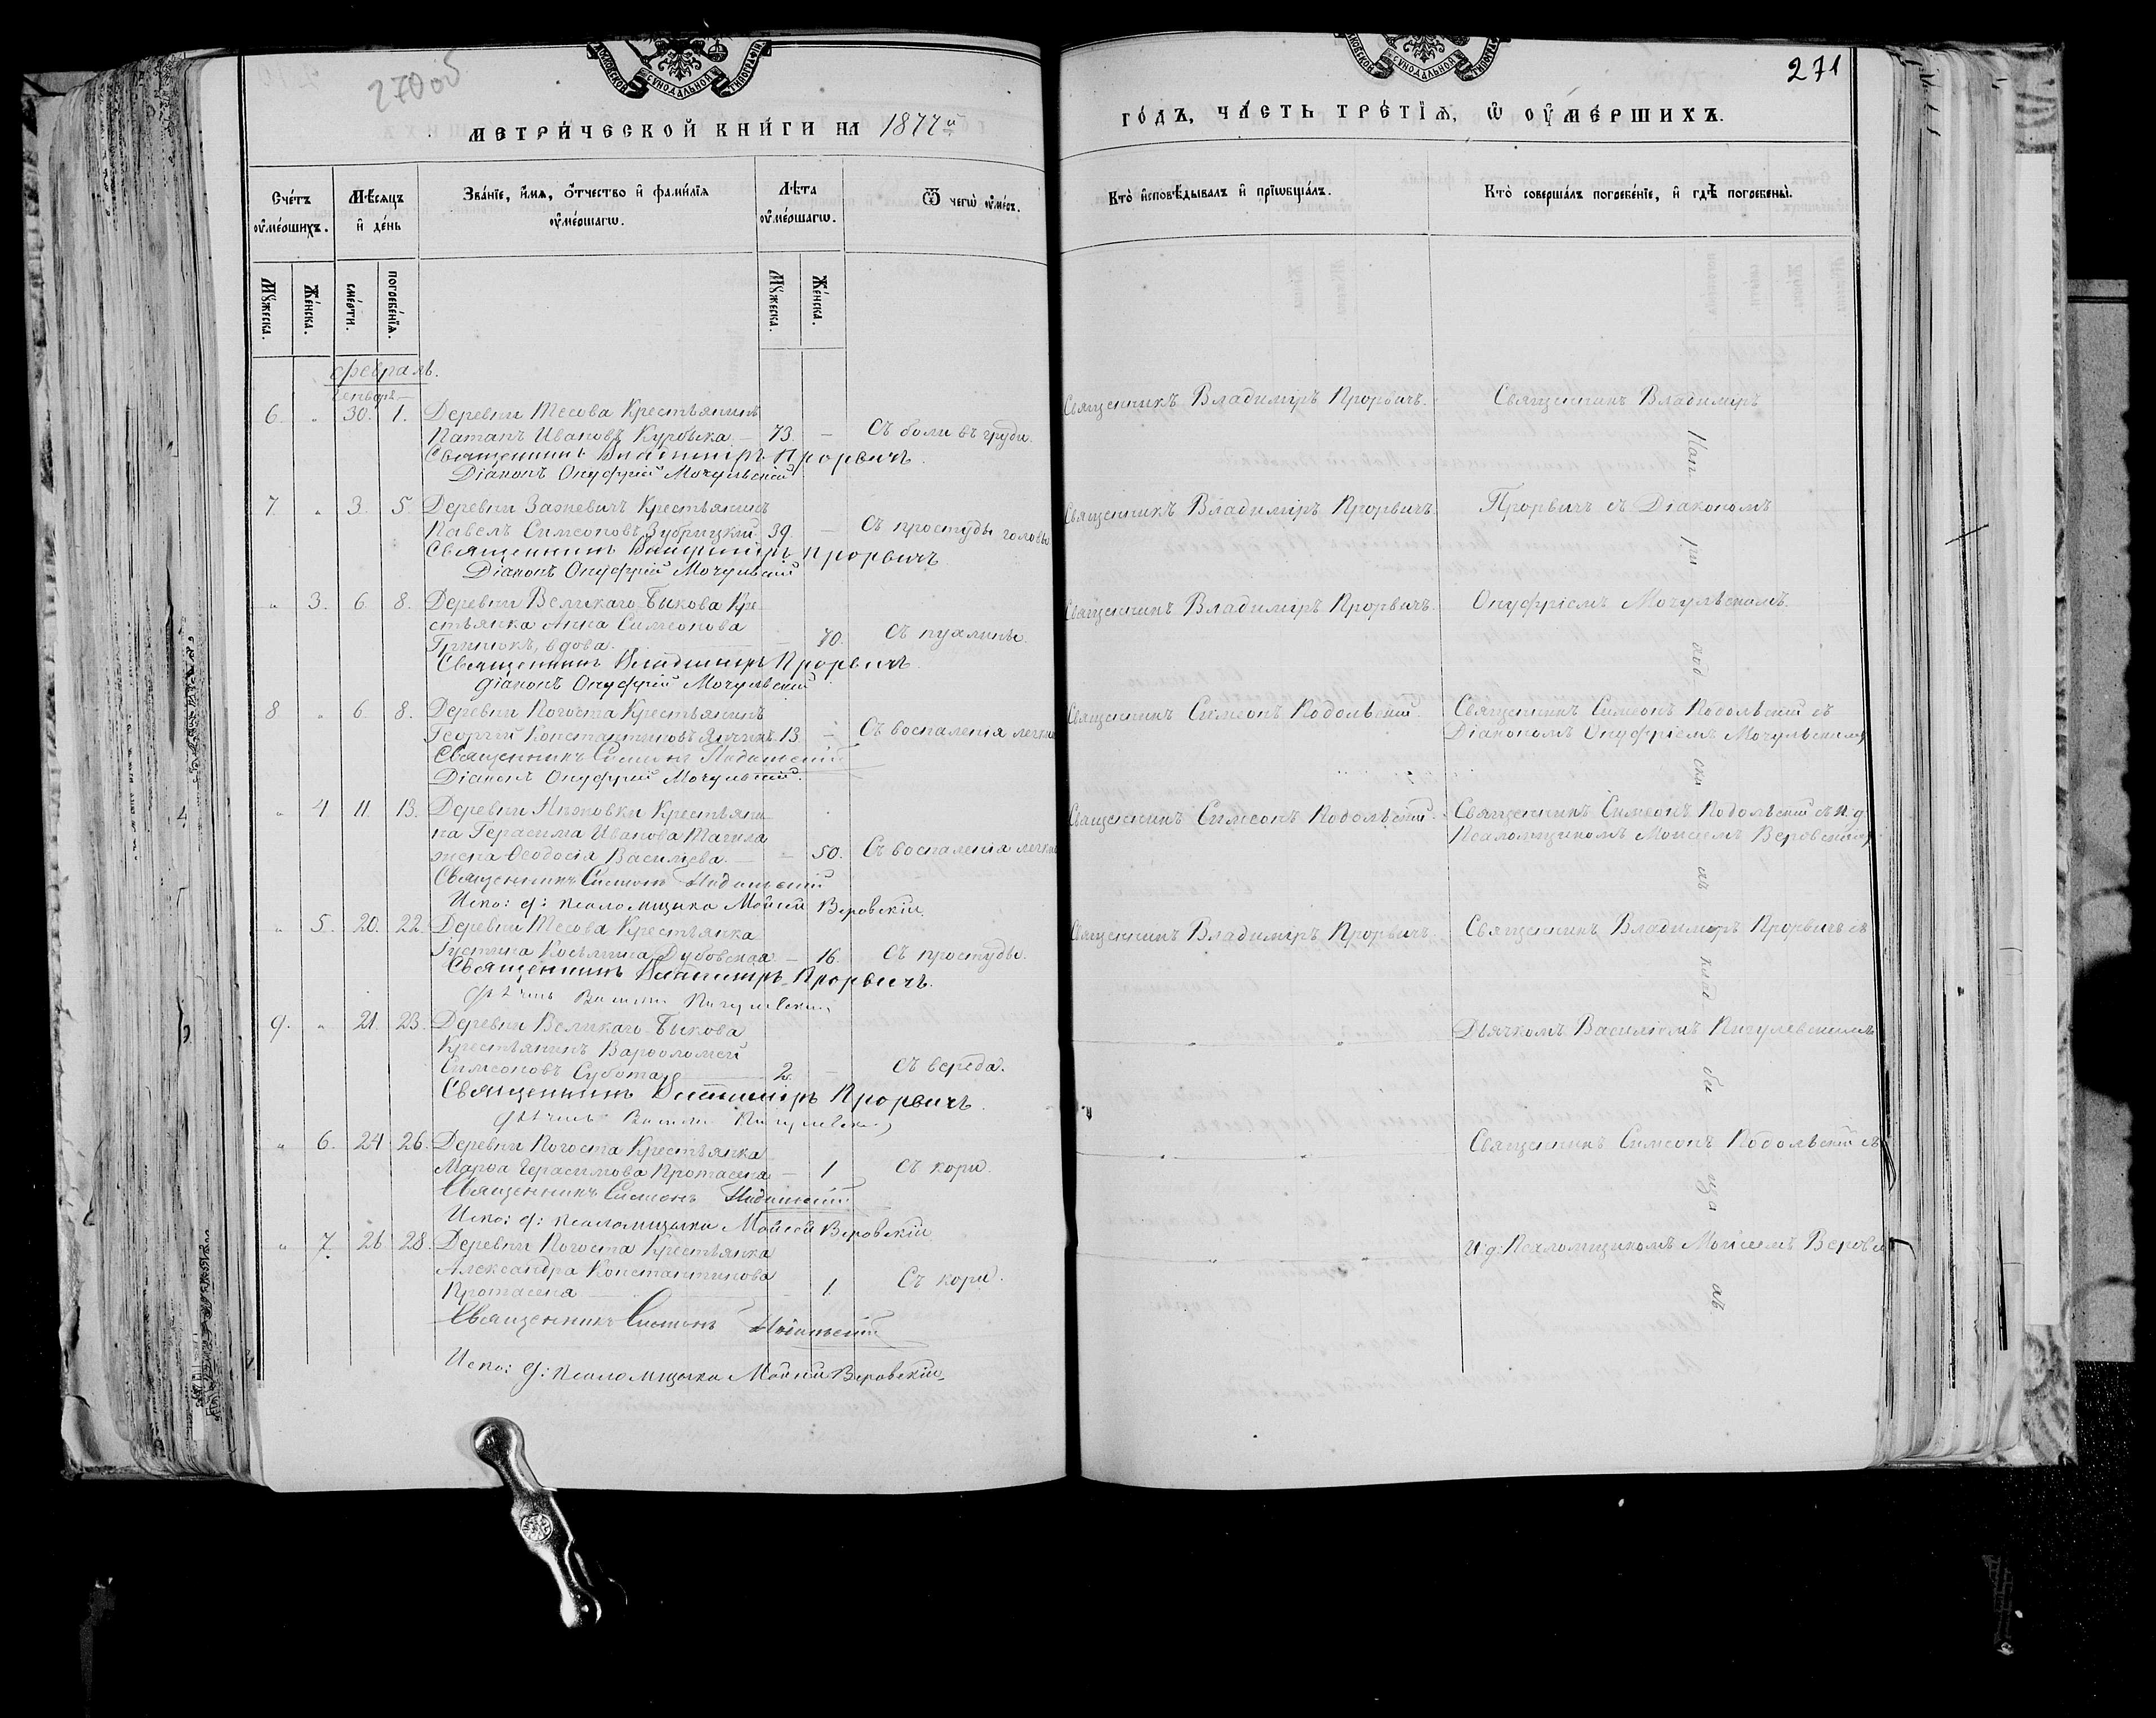 270 об
271
МЕТРИЧЕСКОЙ КНИГИ НА 1877й
ГОДЪ, ЧАСТЬ ТРЕТІЯ, Ѿ ОУМЕРШИХЪ.
Счетъ оумершихъ.
Мѣсяцъ и день
Званіе, имя, отчество и фамилія оумершагѡ.
Лѣта оумершагѡ.
Ѿ чегѡ оумеръ.
Кто исповѣдывалъ и пріѡбщалъ.
Кто совершалъ погребеніе, и гдѣ погребены.
Мужеска.
Женска.
смерти.
погребенія.
Мужеска.
Женска.
Февраль.
6. " 30. 1. Деревни Тесова Крестьянинъ
Патапъ Ивановъ — 73. — Съ боли въ груди.
Священникъ Владиміръ Прорвичъ
Діаконъ Онуфрій Мочульскій
Священникъ Владиміръ Прорвичъ.
Священникъ Владиміръ
7. " 3. 5. Деревни Крестьянинъ
Павелъ Симеоновъ Зубрицкій. 39. — Съ простуды головы
Священникъ Владиміръ Прорвичъ
Діаконъ Онуфрій Мочульскій
Священникъ Владиміръ Прорвичъ.
Прорвичъ съ Діакономъ
" 3. 6 8. Деревни Великаго-Быкова Кре-
стьянка Анна Симеонова
вдова. — 70. Съ пухлины.
Священникъ Владиміръ Прорвичъ
Діаконъ Онуфрій Мочульскій
Священникъ Владиміръ Прорвичъ.
Онуфріемъ Мочульскимъ.
8 " 6. 8. Деревни Погоста Крестьянинъ
Георгій Константиновъ 13. — Съ воспаленія легкихъ
Священникъ Симеонъ Подольскій
Діаконъ Онуфрій Мочульскій.
Священникъ Симеонъ Подольскій.
Священникъ Симеонъ Подольскій съ
Діакономъ Онуфріемъ Мочульскимъ
" 4 11. 13. Деревни Крестьяни-
на Герасима Иванова
жена Ѳеодосія Васильева. — 50. Съ воспаленія легкихъ
Священникъ Симеонъ Подольскій
Испо: д: псаломщика Моисей Веровскій.
Священникъ Симеонъ Подольскій.
Священникъ Симеонъ Подольскій съ И. д.
Псаломщикомъ Моисеемъ Веровскимъ
" 5. 20. 22. Деревни Тесова Крестьянка
Дубовская — 16. Съ простуды.
Священникъ Владиміръ Прорвичъ.
Священникъ Владиміръ Прорвичъ.
Священникъ Владиміръ Прорвичъ съ
9. " 21. 23. Деревни Великаго-Быкова
Крестьянинъ Варѳоломей
Симеоновъ Субота — 2. — Съ вереда.
Священникъ Владиміръ Прорвичъ.
Дьячкомъ Василіемъ Пигулевскимъ
" 6. 24 26. Деревни Погоста Крестьянка
Марѳа Герасимова Протасеня — 1 Съ кори.
Священникъ Симеонъ Подольскій
Испо: д: псаломщика Моисей Веровскій
Священникъ Симеонъ Подольскій съ
" 7. 26 28. Деревни Погоста Крестьянка
Александра Константинова
Протасеня — 1. Съ кори.
Священникъ Симеонъ Подольскій
Испо: д: псаломщика Моисей Веровскій
И. д. Псаломщикомъ Моисеемъ